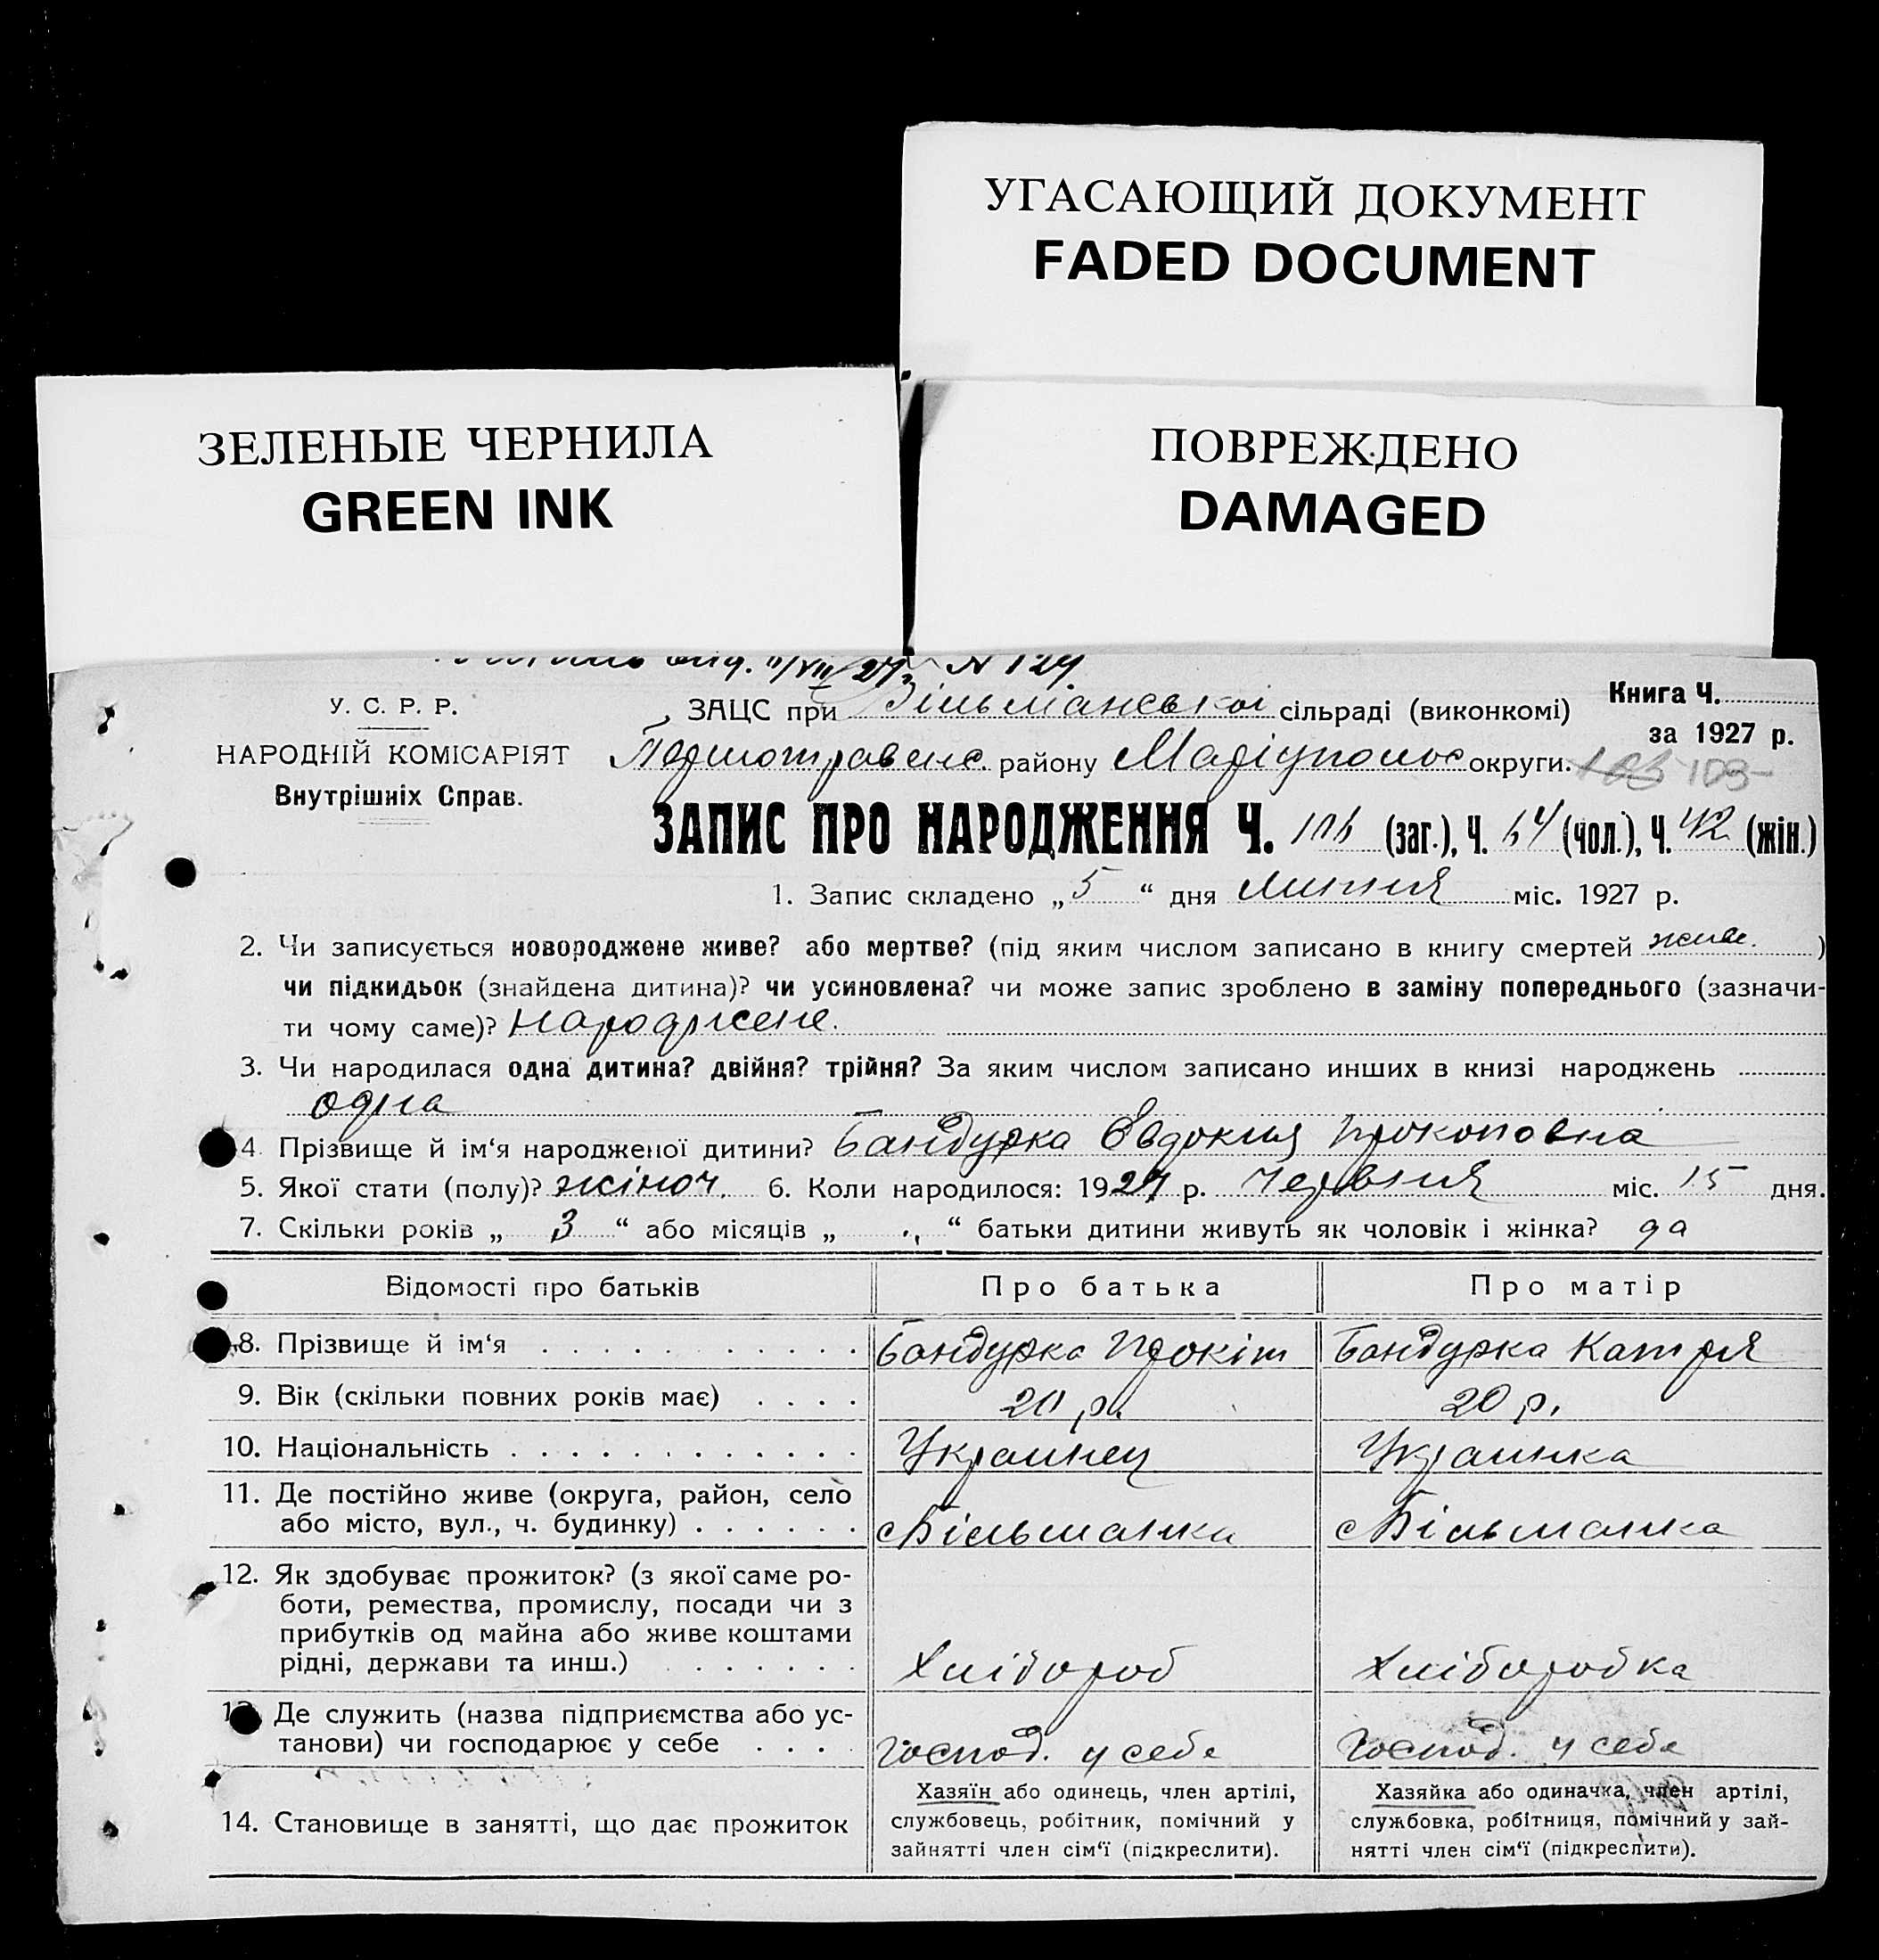 УГАСАЮЩИЙ ДОКУМЕНТ
FADED DOCUMENT
ЗЕЛЕНЫЕ ЧЕРНИЛА
GREEN INK
ПОВРЕЖДЕНО
DAMAGED
11/VII 27 N 129
У. С. Р. Р.
НАРОДНІЙ КОМІСАРІЯТ
Внутрішніх Справ.
ЗАЦС при Більманської сільраді (виконкомі)
Першотравенс. району Маріупольс округи.
Книга Ч.
за 1927 р.
103
ЗАПИС ПРО НАРОДЖЕННЯ Ч. 106 (заг.), Ч. 64 (чол.), Ч. 42 (жін.)
1. Запис складено „5“ дня Липня міс. 1927 р.
2. Чи записується новороджене живе? або мертве? (під яким числом записано в книгу смертей живе. )
чи підкидьок (знайдена дитина)? чи усиновлена? чи може запис зроблено в заміну попереднього (зазначи-
ти чому саме)? народжене.
3. Чи народилася одна дитина? двійня? трійня? За яким числом записано инших в книзі народжень
одна
4. Прізвище й ім‘я народженої дитини? Бандурка Евдокия Прокоповна
5. Якої стати (полу)? жіноч. 6. Коли народилося: 1927 р. Червня міс. 15 дня.
7. Скільки років „ 3 “ або місяців „ „ “ батьки дитини живуть як чоловік і жінка? да
Відомості про батьків
Про батька
Про матір
8. Прізвище й ім‘я
Бандурка Прокіп
Бандурка Катря
9. Вік (скільки повних років має)
20 р.
20 р.
10. Національність
Украинец
Украинка
11. Де постійно живе (округа, район, село
або місто, вул., ч. будинку)
Більманка
Більманка
12. Як здобуває прожиток? (з якої саме ро-
боти, ремества, промислу, посади чи з
прибутків од майна або живе коштами
рідні, держави та инш.)
Хлібороб
Хліборобка
13. Де служить (назва підприємства або ус-
танови) чи господарює у себе
Господ. у себе
Господ. у себе
14. Становище в занятті, що дає прожиток
Хазяїн або одинець, член артілі,
службовець, робітник, помічний у
зайнятті член сім‘ї (підкреслити).
Хазяйка або одиначка, член артілі,
службовка, робітниця, помічний у зай-
нятті член сім‘ї (підкреслити).